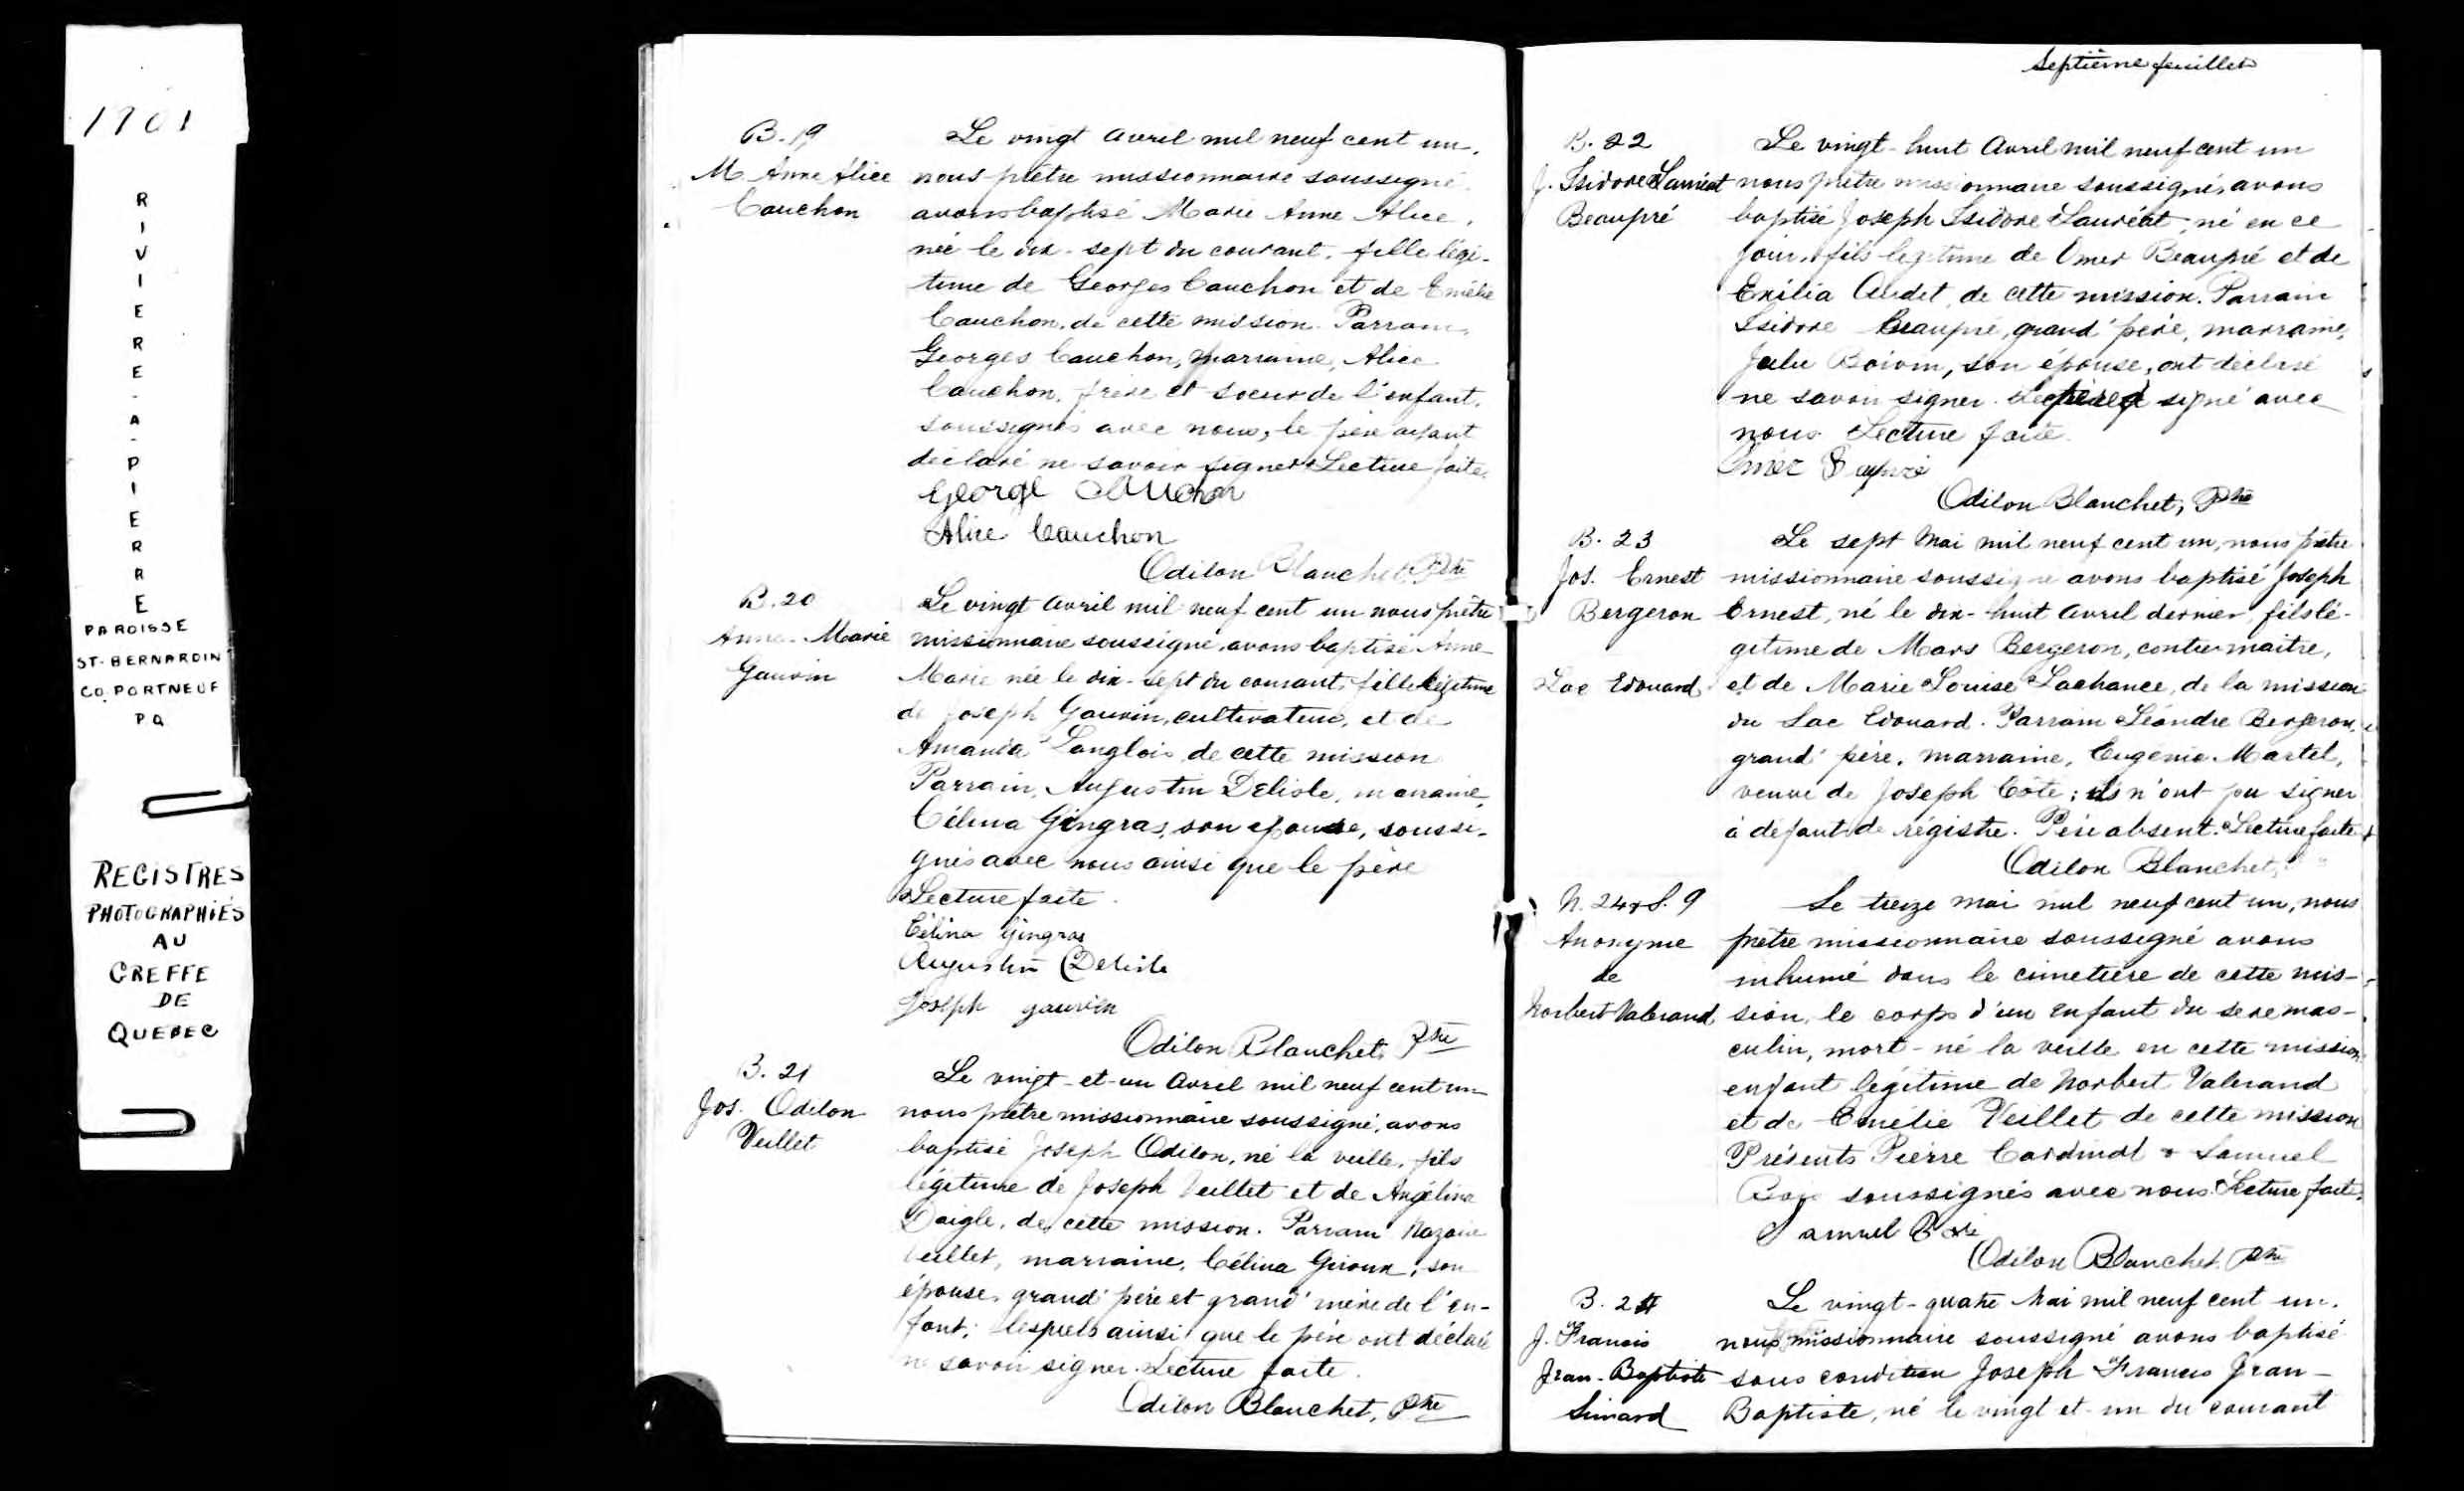 1901
RIVIERE-A-PIERRE
PAROISSE
ST-BERNARDIN
CO. PORTNEUF
P.Q
REGISTRES
PHOTOGRAPHIÉS
AU
GREFFE
DE
QUEBEC
B. 19
M. Anne Alice
Cauchon
Le vingt Avril mil neuf cent un,
nous prêtre missionnaire soussigné,
avons baptisé Marie Anne Alice,
née le dix-sept du courant, fille légi-
time de Georges Cauchon et de Emélie
Cauchon, de cette mission. Parrain,
Georges Cauchon, marraine, Alice
Cauchon, frère et soeur de l'enfant,
soussignés avec nous, le père ayant
déclaré ne savoir signer. Lecture faite.
George Cauchon
Alice Cauchon
Odilon Blanchet, Ptre
B. 20
Anne-Marie
Gauvin
Le vingt Avril mil neuf cent un nous prêtre
missionnaire soussigné, avons baptisé Anne
Marie née le dix-sept du courant, fille légitime
de Joseph Gauvin, cultivateur, et de
Amanda Langlois de cette mission
Parrain, Augustin Delisle, marraine,
Célina Gingras, son épouse, soussi-
gnés avec nous ainsi que le père
Lecture faite.
Célina Gingras
Augustin Delisle
Joseph gauvin
Odilon Blanchet, Ptre
B. 21
Jos. Odilon
Veillet
Le vingt-et-un Avril mil neuf cent un
nous prêtre missionnaire soussigné, avons
baptisé Joseph Odilon, né la veille, fils
légitime de Joseph Veillet et de Angélina
Daigle, de cette mission. Parrain Nazaire
Veillet, marraine, Célina Giroux, son
épouse, grand'père et grand'mère de l'en-
fant; lesquels ainsi que le père ont déclaré
ne savoir signer. Lecture faite.
Odilon Blanchet, Ptre
Septième feuillet
B. 22
J. Isidore Lauréat
Beaupré
Le vingt-huit Avril mil neuf cent un
nous prêtre missionnaire soussigné, avons
baptisé Joseph Isidore Lauréat, né en ce
jour, fils légitime de Omer Beaupré et de
Exilia Audet, de cette mission. Parrain
Isidore Beaupré, grand'père, marraine,
Julie Boivin, son épouse, ont déclaré
ne savoir signer. Le père a signé avec
nous. Lecture faite.
Omer
Odilon Blanchet, Ptre
B. 23
Jos. Ernest
Bergeron
Lac Edouard
Le sept Mai mil neuf cent un, nous prêtre
missionnaire soussigné avons baptisé Joseph
Ernest, né le dix-huit Avril dernier, fils lé-
gitime de Mars Bergeron, contre-maître,
et de Marie Louise Lachance, de la mission
du Lac Edouard. Parrain Léandre Bergeron,
grand'père, marraine, Eugénie Martel,
veuve de Joseph Côté; ils n'ont pu signer
à défaut de régistre. Père absent. Lecture faite
Odilon Blanchet,
N. 24 & S. 9
Anonyme
de
Norbert Valerand
Le treize mai mil neuf cent un, nous
prêtre missionnaire soussigné avons
inhumé dans le cimetière de cette mis-
sion, le corps d'un enfant du sexe mas-
culin, mort-né la veille en cette mission
enfant légitime de Norbert Valerand
et de Emélie Veillet de cette mission
Présents Pierre Cardinal & Samuel
soussignés avec nous. Lecture faite.
Samuel
Odilon Blanchet, Ptre
B. 24
J. Francis
Jean-Baptiste
Simard
Le vingt-quatre Mai mil neuf cent un,
nous missionnaire soussigné avons baptisé
sous condition Joseph Francis Jean-
Baptiste, né le vingt et un du courant